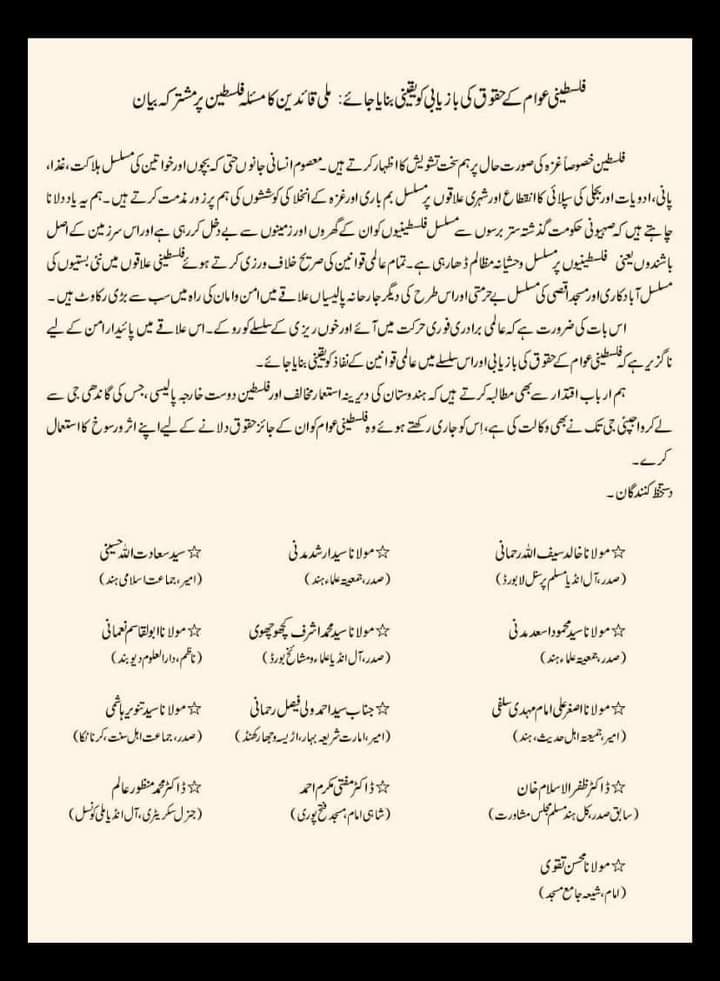 فلسطینی عوام کے حقوق کی بازیابی کو یقینی بنایا جائے: ملی قائدین کا مسئلہ فلسطین پر مشترکہ بیان
فلسطین خصوصاً غزہ کی صورت حال پر ہم سخت تشویش کا اظہار کرتے ہیں۔ معصوم انسانی جانوں حتیٰ کہ بچوں اور خواتین کی مسلسل ہلاکت، غذا،
پانی، ادویات اور بجلی کی سپلائی کا انقطاع اور شہری علاقوں پر مسلسل بم باری اور غزہ کے انخلا کی کوششوں کی ہم پر زور مذمت کرتے ہیں۔ ہم یہ یاد دلانا
چاہتے ہیں کہ صہیونی حکومت گذشتہ ستر برسوں سے مسلسل فلسطینیوں کو ان کے گھروں اور زمینوں سے بے دخل کر رہی ہے اور اس سرزمین کے اصل
باشندوں یعنی فلسطینیوں پر مسلسل وحشیانہ مظالم ڈھا رہی ہے۔ تمام عالمی قوانین کی صریح خلاف ورزی کرتے ہوئے فلسطینی علاقوں میں نئی بستیوں کی
مسلسل آباد کاری اور مسجد اقصیٰ کی مسلسل بے حرمتی اور اس طرح کی دیگر جارحانہ پالیسیاں علاقے میں امن و امان کی راہ میں سب سے بڑی رکاوٹ ہیں۔
اس بات کی ضرورت ہے کہ عالمی برادری فوری حرکت میں آئے اور خوں ریزی کے سلسلے کو روکے۔ اس علاقے میں پائیدار امن کے لیے
ناگزیر ہے کہ فلسطینی عوام کے حقوق کی بازیابی اور اس سلسلے میں عالمی قوانین کے نفاذ کو یقینی بنایا جائے۔
ہم ارباب اقتدار سے بھی مطالبہ کرتے ہیں کہ ہندوستان کی دیرینہ استعمار مخالف اور فلسطین دوست خارجہ پالیسی، جس کی گاندھی جی سے
لے کر واجپئی جی تک نے بھی وکالت کی ہے، اِس کو جاری رکھتے ہوئے وہ فلسطینی عوام کو ان کے جائز حقوق دلانے کے لیے اپنے اثر و رسوخ کا استعمال
کرے۔
دستخط کنندگان۔
☆ مولانا خالد سیف اللہ رحمانی ☆ مولانا سید ارشد مدنی ☆ سید سعادت اللہ حسینی
(صدر، آل انڈیا مسلم پرسنل لا بورڈ) (صدر، جمعیۃ علماء ہند) (امیر، جماعت اسلامی ہند)
☆ مولانا سید محمود اسعد مدنی ☆ مولانا سید محمد اشرف کچھوچھوی ☆ مولانا ابوالقاسم نعمانی
(صدر، جمعیۃ علماء ہند) (صدر، آل انڈیا علماء و مشائخ بورڈ) (ناظم، دارالعلوم دیوبند)
☆ مولانا اصغر علی امام مہدی سلفی ☆ جناب سید احمد ولی فیصل رحمانی ☆ مولانا سید تنویر ہاشمی
(امیر، جمعیۃ اہل حدیث، ہند) (امیر، امارت شریعہ بہار، اڑیسہ و جھارکھنڈ) (صدر، جماعت اہل سنت، کرناٹکا)
☆ ڈاکٹر ظفر الاسلام خان ☆ ڈاکٹر مفتی مکرم احمد ☆ ڈاکٹر محمد منظور عالم
(سابق صدر، کل ہند مسلم مجلس مشاورت) (شاہی امام، مسجد فتح پوری) (جنرل سکریٹری، آل انڈیا ملی کونسل)
☆ مولانا محسن تقوی
(امام، شیعہ جامع مسجد)